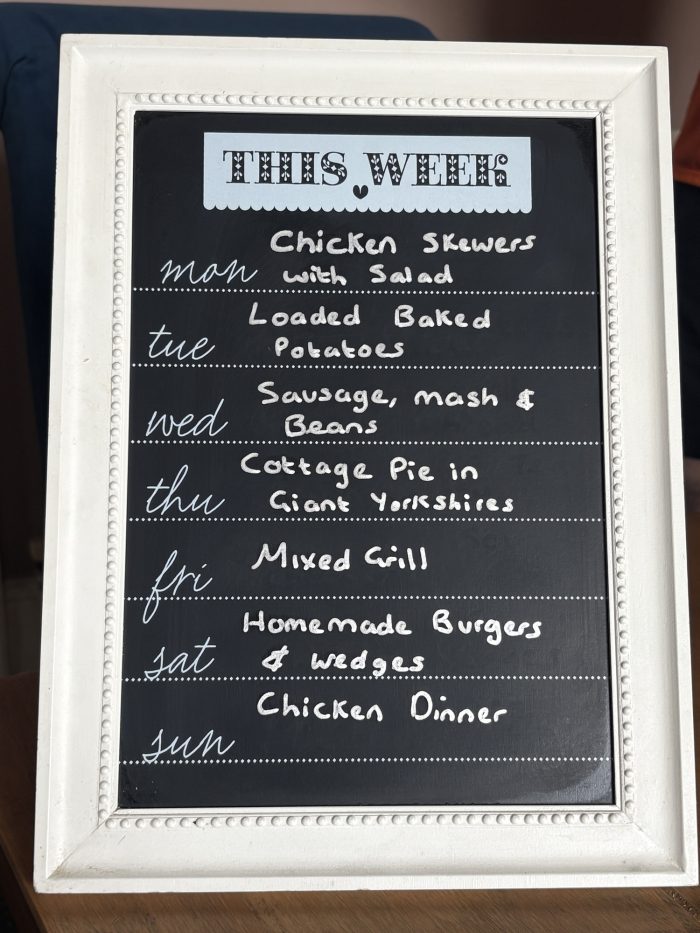 THIS WEEK
Chicken Skewers
mon with Salad
Loaded Baked
tue Potatoes
Sausage, mash &
wed Beans
Cottage Pie in
thu Giant Yorkshires
fri Mixed Grill
Homemade Burgers
sat & wedges
Chicken Dinner
sun